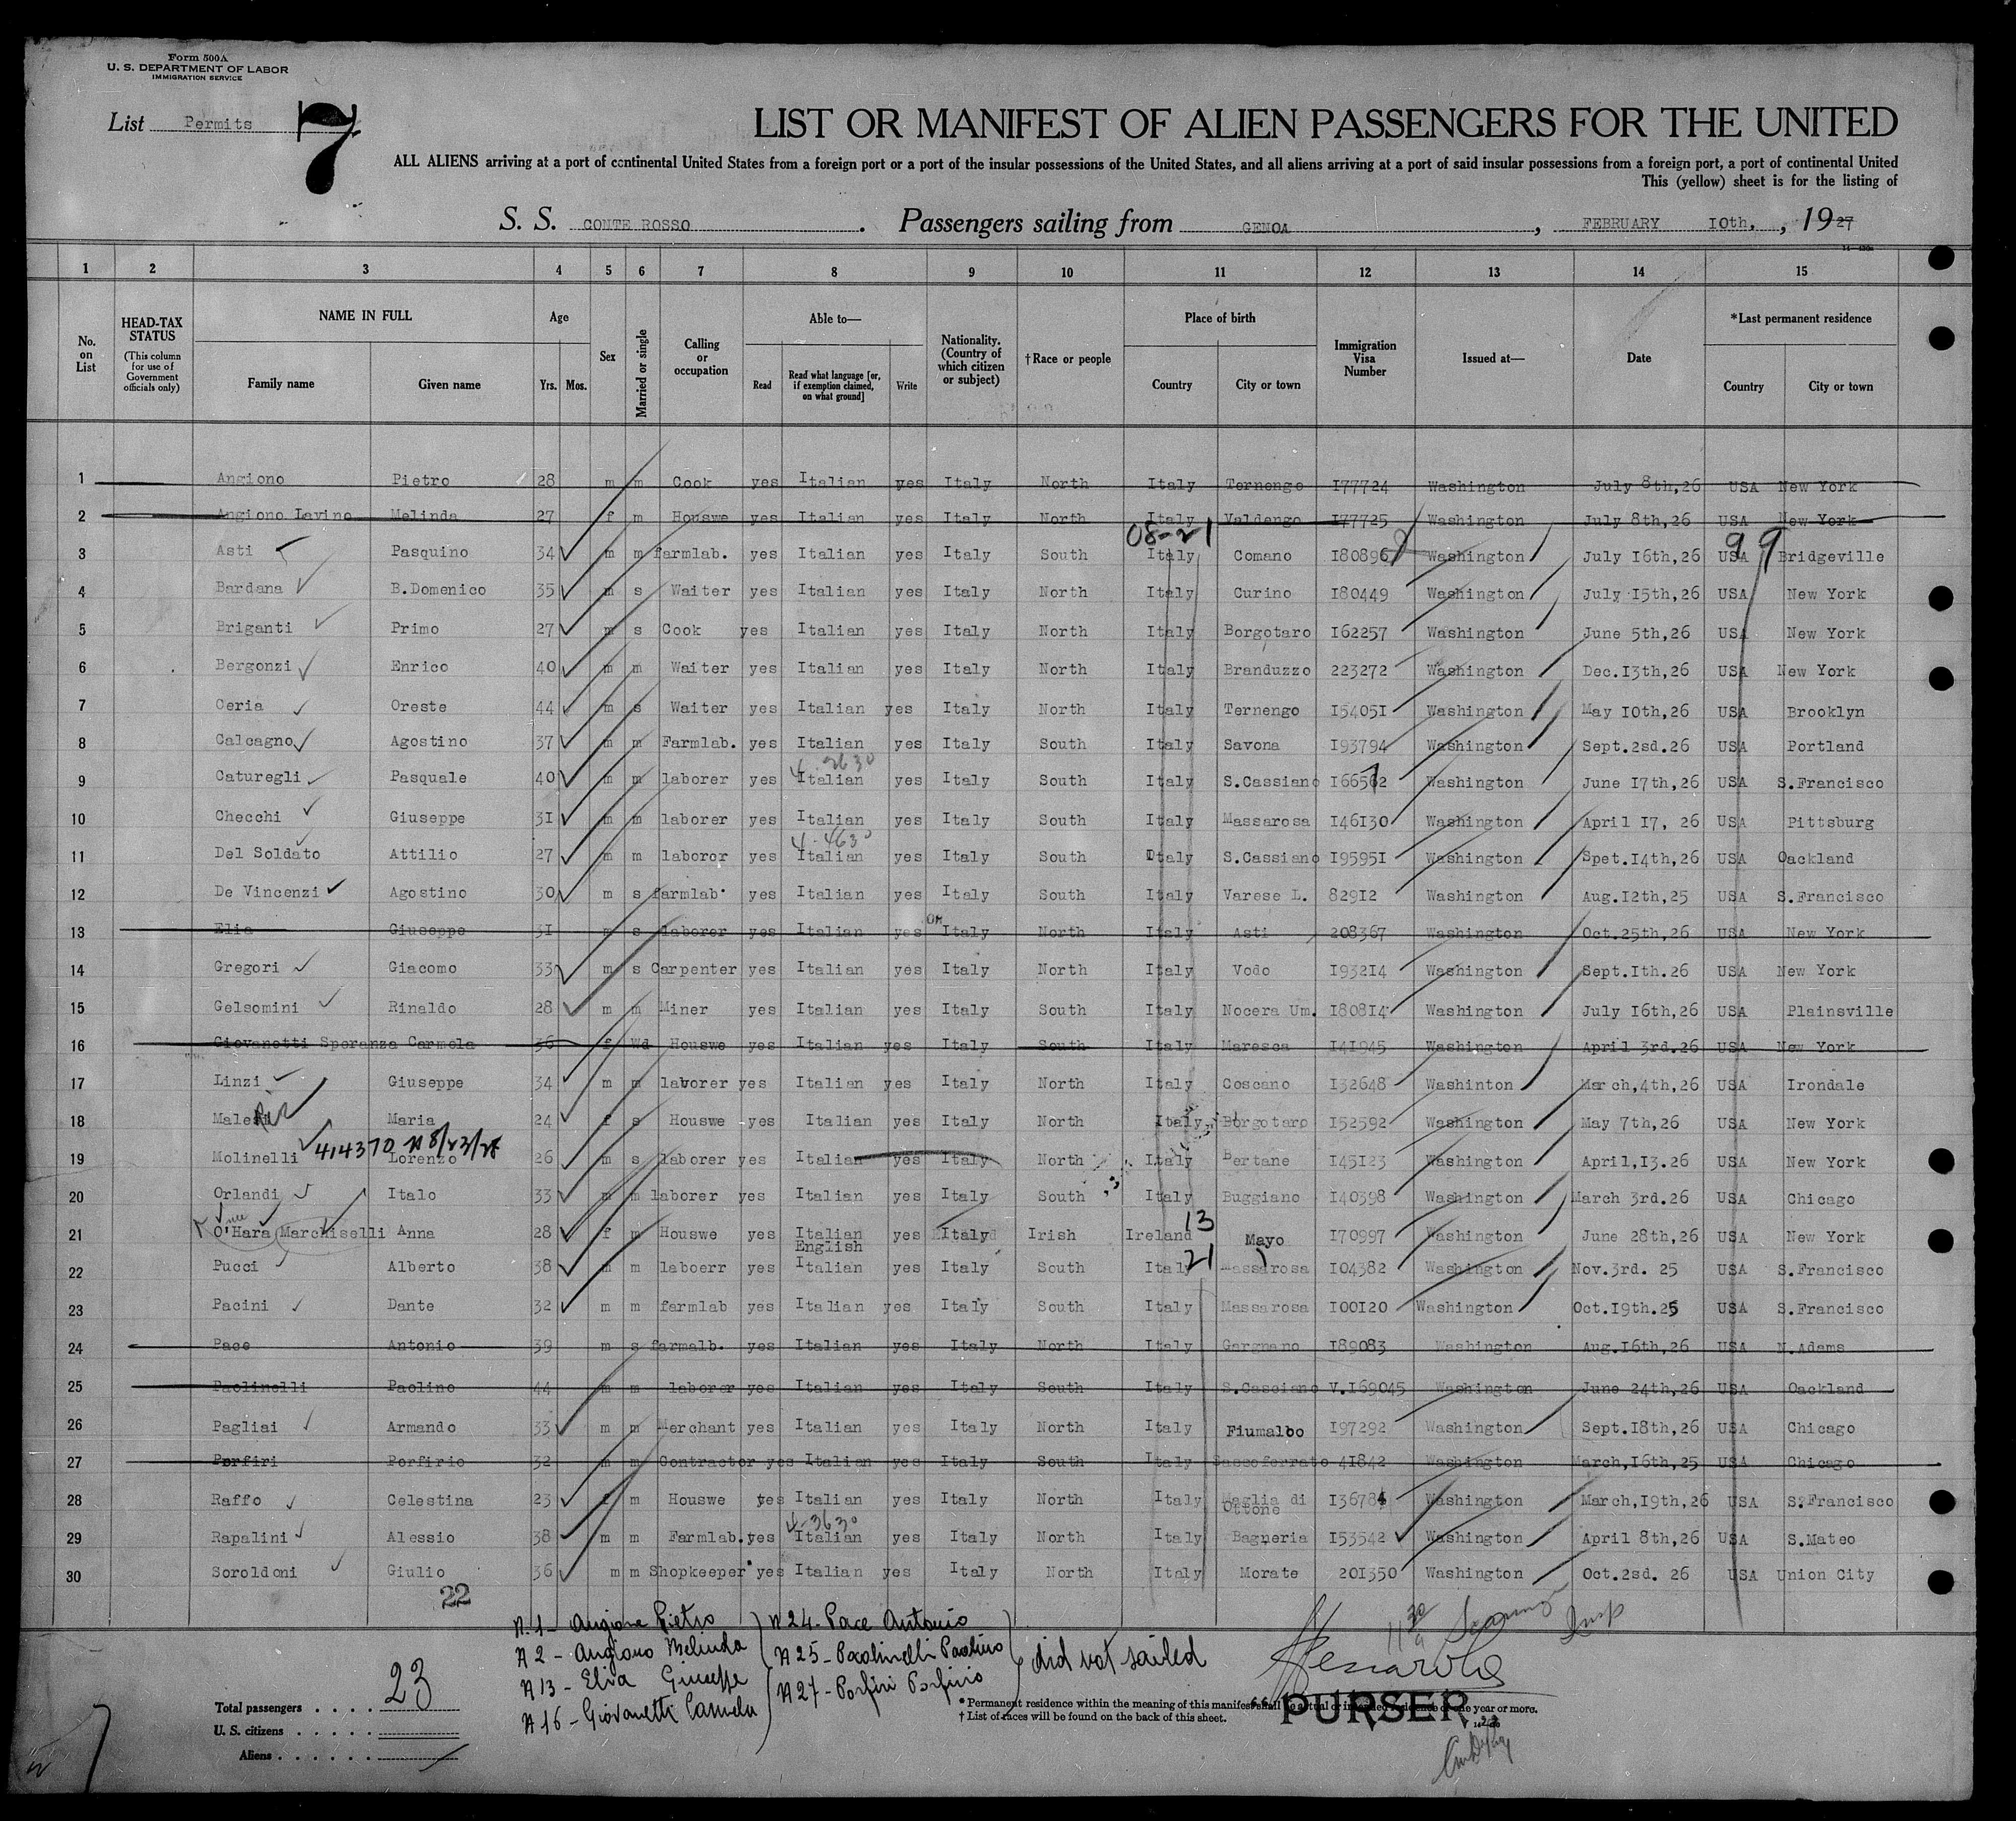 Form 500A
U. S. DEPARTMENT OF LABOR
IMMIGRATION SERVICE
List Permits 7
LIST OR MANIFEST OF ALIEN PASSENGERS FOR THE UNITED
ALL ALIENS arriving at a port of continental United States from a foreign port or a port of the insular possessions of the United States, and all aliens arriving at a port of said insular possessions from a foreign port, a port of continental United
This (yellow) sheet is for the listing of
S. S. CONTE ROSSO . Passengers sailing from GENOA , FEBRUARY 10th, , 1927
1 2 3 4 5 6 7 8 9 10 11 12 13 14 15
No. on List HEAD-TAX STATUS (This column for use of Government officials only) NAME IN FULL Family name Given name Age Yrs. Mos. Sex Married or single Calling or occupation Able to— Read Read what language [or, if exemption claimed, on what ground] Write Nationality. (Country of which citizen or subject) †Race or people Place of birth Country City or town Immigration Visa Number Issued at— Date *Last permanent residence Country City or town
1 Angiono Pietro 28 m m Cook yes Italian yes Italy North Italy Ternengo 177724 Washington July 8th,26 USA New York
2 Angiono Lavino Melinda 27 f m Houswe yes Italian yes Italy North Italy Valdengo 177725 Washington July 8th,26 USA New York
08-21 99
3 Asti Pasquino 34 m m farmlab. yes Italian yes Italy South Italy Comano 180896 Washington July 16th,26 USA Bridgeville
4 Bardana B.Domenico 35 m s Waiter yes Italian yes Italy North Italy Curino 180449 Washington July 15th,26 USA New York
5 Briganti Primo 27 m s Cook yes Italian yes Italy North Italy Borgotaro 162257 Washington June 5th,26 USA New York
6 Bergonzi Enrico 40 m m Waiter yes Italian yes Italy North Italy Branduzzo 223272 Washington Dec.13th,26 USA New York
7 Ceria Oreste 44 m s Waiter yes Italian yes Italy North Italy Ternengo 154051 Washington May 10th,26 USA Brooklyn
8 Calcagno Agostino 37 m m Farmlab. yes Italian yes Italy South Italy Savona 193794 Washington Sept.2sd.26 USA Portland
9 Caturegli Pasquale 40 m m laborer yes Italian yes Italy South Italy S.Cassiano 166562 Washington June 17th,26 USA S.Francisco
10 Checchi Giuseppe 31 m m laborer yes Italian yes Italy South Italy Massarosa 146130 Washington April 17, 26 USA Pittsburg
11 Del Soldato Attilio 27 m m laboror yes Italian yes Italy South Italy S.Cassiano 195951 Washington Spet.14th,26 USA Oackland
12 De Vincenzi Agostino 30 m s farmlab. yes Italian yes Italy South Italy Varese L. 82912 Washington Aug.12th,25 USA S.Francisco
13 Elia Giuseppe 31 m s laborer yes Italian yes Italy North Italy Asti 208367 Washington Oct.25th,26 USA New York
14 Gregori Giacomo 33 m s Carpenter yes Italian yes Italy North Italy Vodo 193214 Washington Sept.1th.26 USA New York
15 Gelsomini Rinaldo 28 m m Miner yes Italian yes Italy South Italy Nocera Um. 180814 Washington July 16th,26 USA Plainsville
16 Giovanetti Speranza Carmela 36 f Wd Houswe yes Italian yes Italy South Italy Maresca 141945 Washington April 3rd.26 USA New York
17 Linzi Giuseppe 34 m m laborer yes Italian yes Italy North Italy Coscano 132648 Washinton March,4th,26 USA Irondale
18 Maria 24 f s Houswe yes Italian yes Italy North Italy Borgotaro 152592 Washington May 7th,26 USA New York
414370
19 Molinelli Lorenzo 26 m s laborer yes Italian yes Italy North Italy Bertane 145123 Washington April,13.26 USA New York
20 Orlandi Italo 33 m m laborer yes Italian yes Italy South Italy Buggiano 140398 Washington March 3rd.26 USA Chicago
21 O'Hara Marchiselli Anna 28 f m Houswe yes Italian English yes Italy Irish Ireland 13 Mayo 170997 Washington June 28th,26 USA New York
22 Pucci Alberto 38 m m laboerr yes Italian yes Italy South Italy 21 Massarosa 104382 Washington Nov.3rd. 25 USA S.Francisco
23 Pacini Dante 32 m m farmlab yes Italian yes Italy South Italy Massarosa 100120 Washington Oct.19th.25 USA S.Francisco
24 Pace Antonio 39 m s farmalb. yes Italian yes Italy North Italy Gargnano 189083 Washington Aug.16th,26 USA N.Adams
25 Paolinelli Paolino 44 m m laborer yes Italian yes Italy South Italy S.Casciano V.169045 Washington June 24th,26 USA Oackland
26 Pagliai Armando 33 m m Merchant yes Italian yes Italy North Italy Fiumalbo 197292 Washington Sept.18th,26 USA Chicago
27 Porfiri Porfirio 32 m m Contractor yes Italian yes Italy South Italy Sassoferrato 41842 Washington March,16th,25 USA Chicago
28 Raffo Celestina 23 f m Houswe yes Italian yes Italy North Italy Maglia di Ottone 136784 Washington March,19th,26 USA S.Francisco
29 Rapalini Alessio 38 m m Farmlab. yes Italian yes Italy North Italy Bagneria 153542 Washington April 8th,26 USA S.Mateo
30 Soroldoni Giulio 36 m m Shopkeeper yes Italian yes Italy North Italy Morate 201350 Washington Oct.2sd. 26 USA Union City
22
N.1- Angiono Pietro N24- Pace Antonio
N2 - Angiono Melinda N25- Paolinelli Paolino did not sailed
N13 - Elia Giuseppe N27- Porfiri Porfirio
N16 - Giovanetti Carmela
Total passengers . . . . 23
U. S. citizens . . . . .
Aliens . . . . . .
* Permanent residence within the meaning of this manifest shall be actual or intended residence of one year or more.
† List of races will be found on the back of this sheet.
PURSER